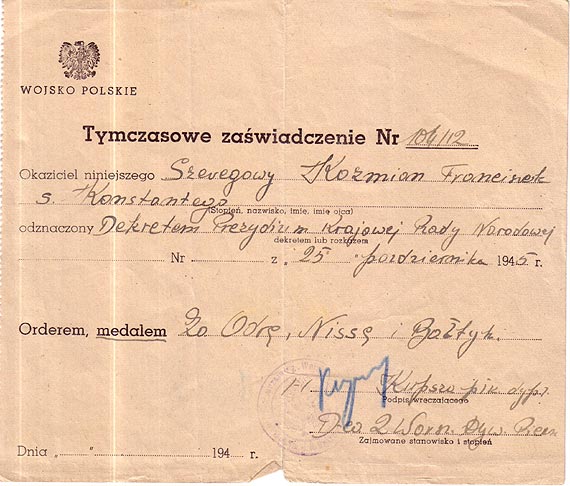 WOJSKO POLSKIE
Tymczasowe zaświadczenie Nr 104/12
Okaziciel niniejszego Szeregowy Koźmian Franciszek
s. Konstantego
(Stopień, nazwisko, imię, imię ojca)
odznaczony Dekretem Prezydium Krajowej Rady Narodowej
dekretem lub rozkazem
Nr z „25" października 1945 r.
Orderem, medalem Za Odrę, Nissę i Bałtyk.
/-/ Kupsza płk dypl.
Podpis wręczającego
D-ca 2 Warsz. Dyw. Piech.
Zajmowane stanowisko i stopień
Dnia „ " 194 r.